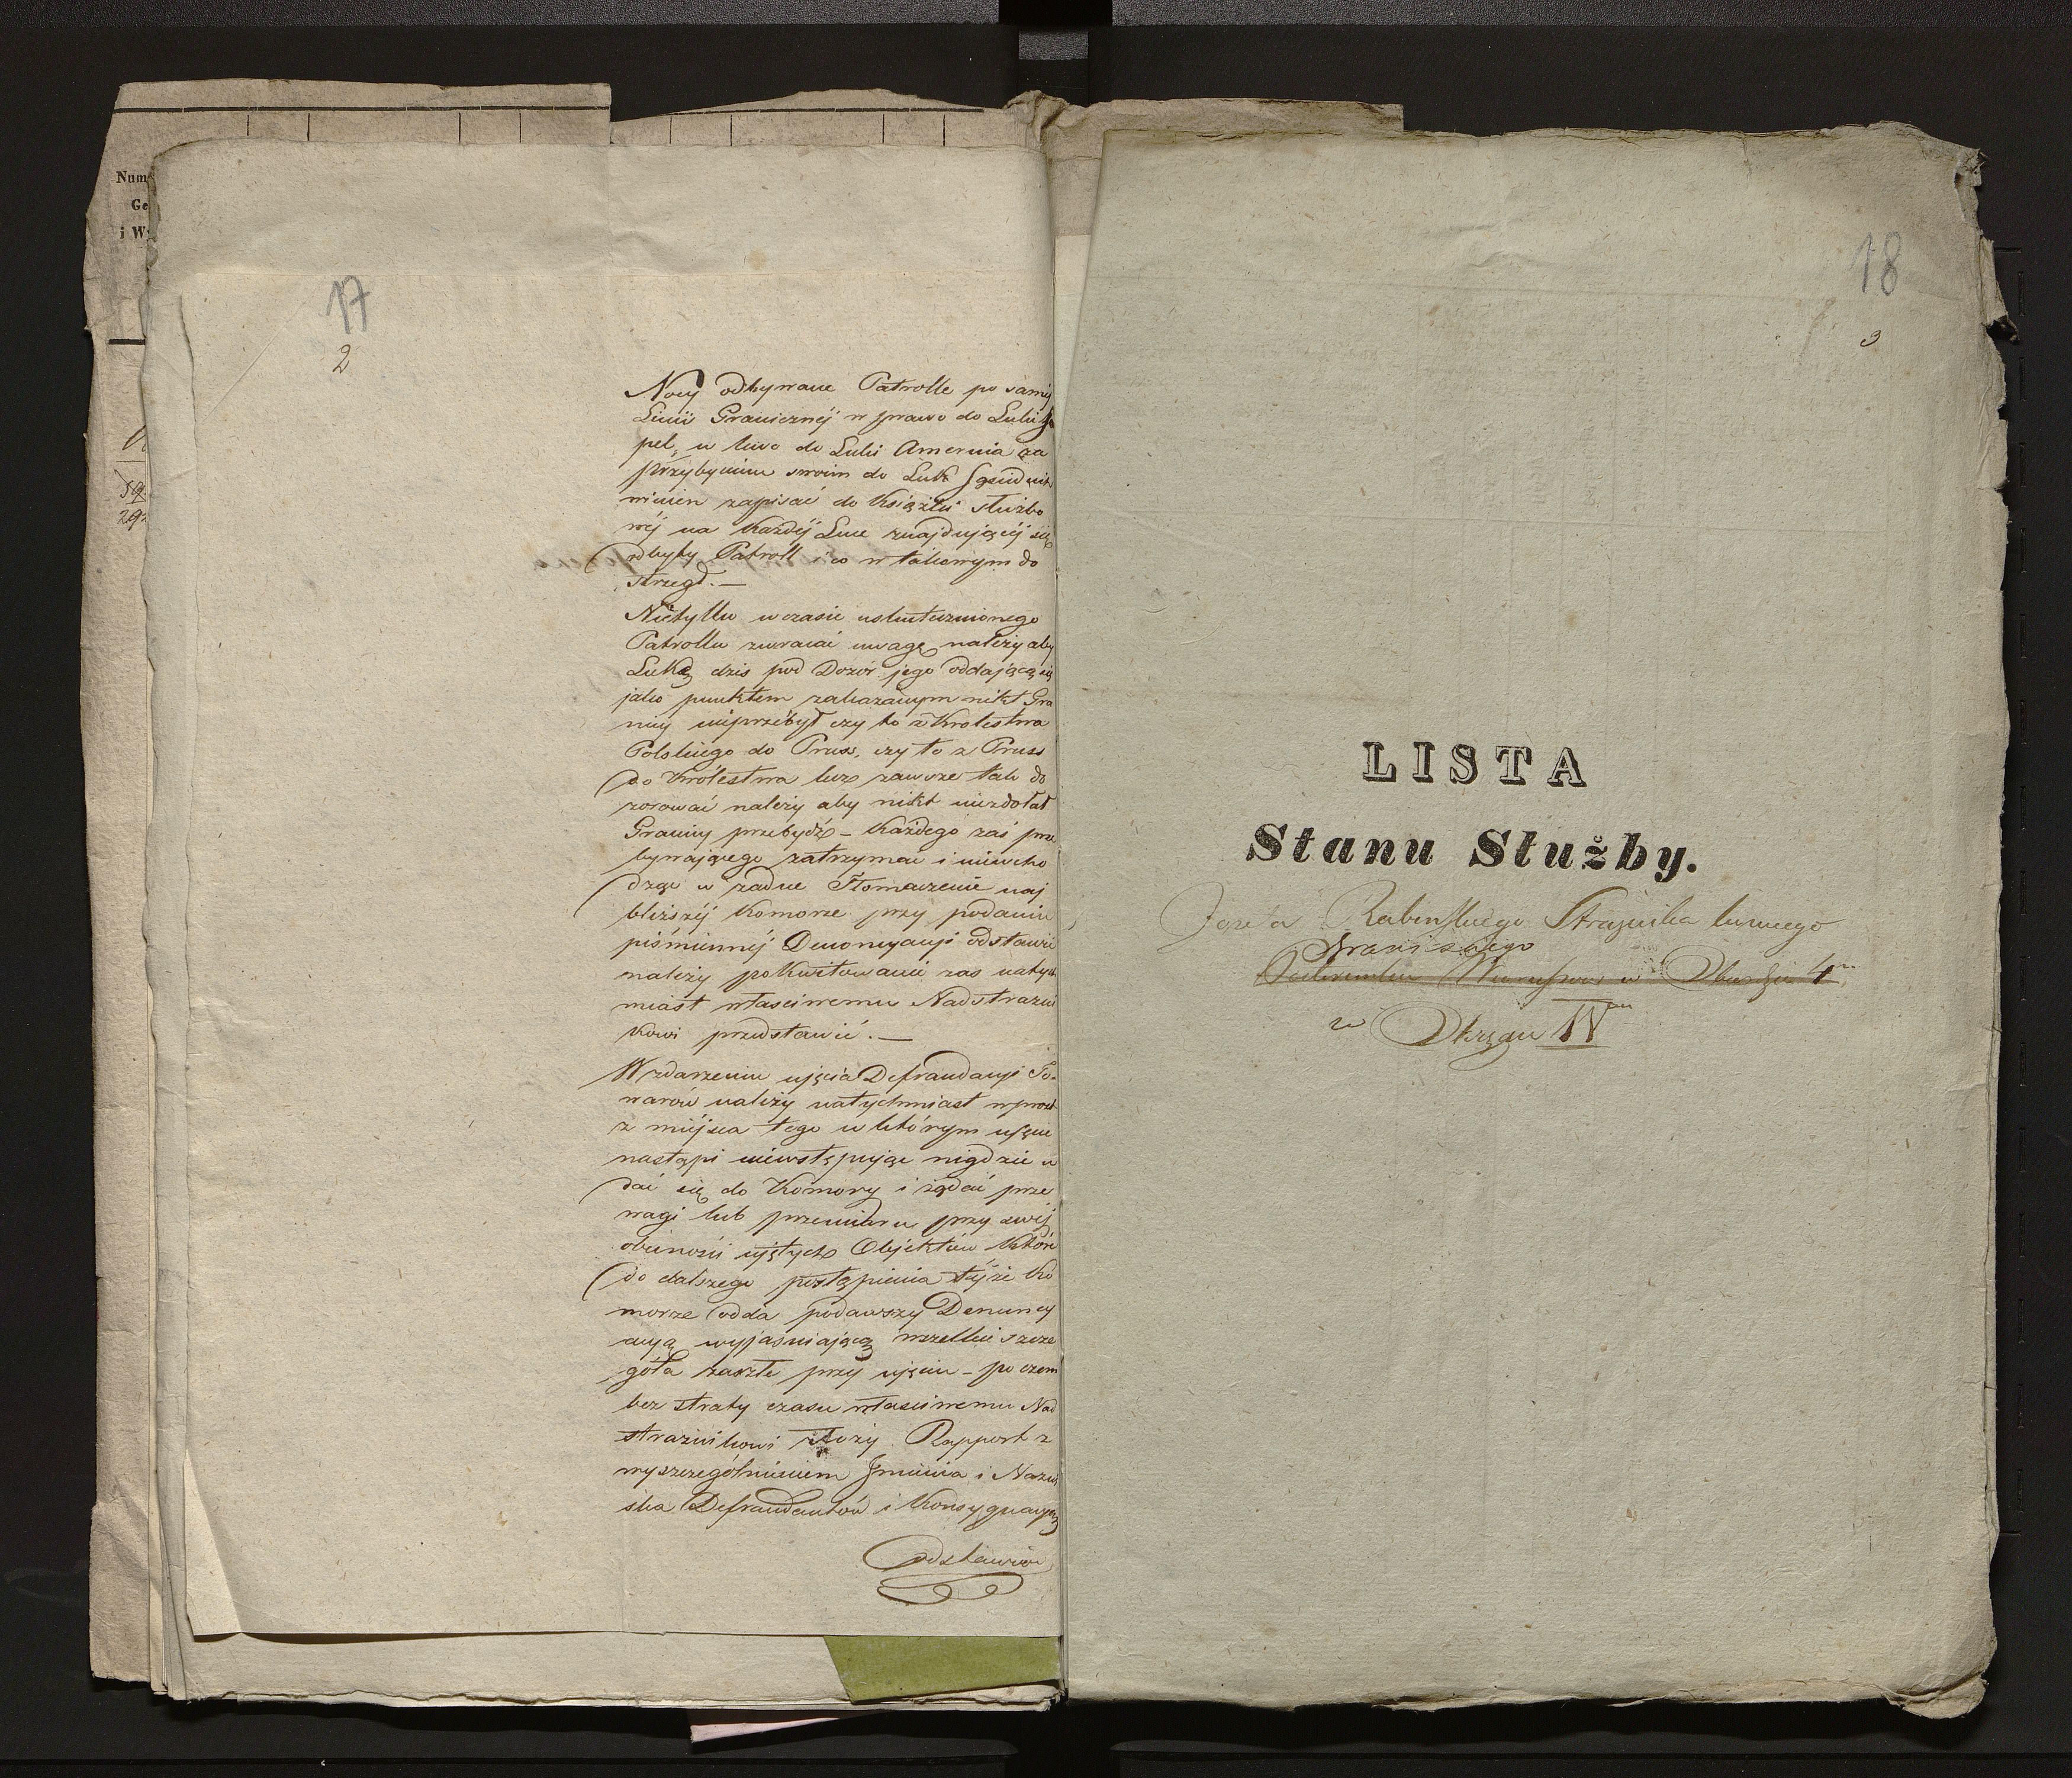 Num
Ge
i W
17
2
Nocy odbywane Patrolle po saméj
Linii Granicznéj w prawo do Luki
pel, w lewo do Luki Amernia za
przybyciem swoim do Luk
winien zapisać do Książki służbo
wéj na każdéj Luce znajdującéj się
odbyty Patroll i co w takowym do
strzegł.—
Nietylko w czasie uskutecznionego
Patrollu zwracać uwagę należy aby
Lukę dziś pod Dozór jego oddającą się
jako punktem zakazanym nikt Gra
nicy nieprzebył czy to z Krolestwa
Polskiego do Pruss, czy to z Pruss
do Królestwa lecz zawsze tak do
zorować należy aby nikt niezdołał
Granicy przebydź – każdego zaś prze
bywającego zatrzymać i niewcho
dząc w żadne Tłomaczenie naj
bliższéj Komorze przy podaniu
piśmiennéj Denoncyacyi odstawić
należy pokwitowanie zas natych
miast właściwemu Nadstrażni
kowi przedstawić.—
W zdarzeniu ujęcia Defraudacyi To-
warów należy natychmiast wprost
z miejsca tego w którym ujęcie
nastąpi niewstępując nigdzie u
dać się do Komory i żądać prze
wagi lub przemiaru przy swéj
obecności ujętych Objektów które
do dalszego postąpienia téjże Ko
morze odda podawszy Denuncy
acyą wyjaśniającą wszelkie szcze
góła zaszłe przy ujęciu – po czem
bez straty czasu właściwemu Nad
strażnikowi złoży Rapport z
wyszczególnieniem Jmienia i Nazwi
ska Defraudantów i Konsygnacyą
odstawion
18
3
LISTA
Stanu Służby.
Józefa Rabinskiego Strażnika konnego
Granicznego
w Obwodzie 4m
w Okręgu IVm